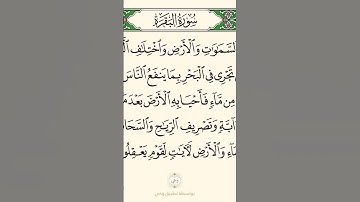 سُورَةُ البَقَرَةِ
ٱلسَّمَٰوَٰتِ وَٱلْأَرْضِ وَٱخْتِلَٰفِ
تَجْرِى فِى ٱلْبَحْرِ بِمَا يَنفَعُ ٱلنَّاسَ
مِن مَّآءٍ فَأَحْيَا بِهِ ٱلْأَرْضَ بَعْدَ
دَآبَّةٍ وَتَصْرِيفِ ٱلرِّيَٰحِ وَٱلسَّحَابِ
وَٱلْأَرْضِ لَءَايَٰتٍ لِّقَوْمٍ يَعْقِلُونَ